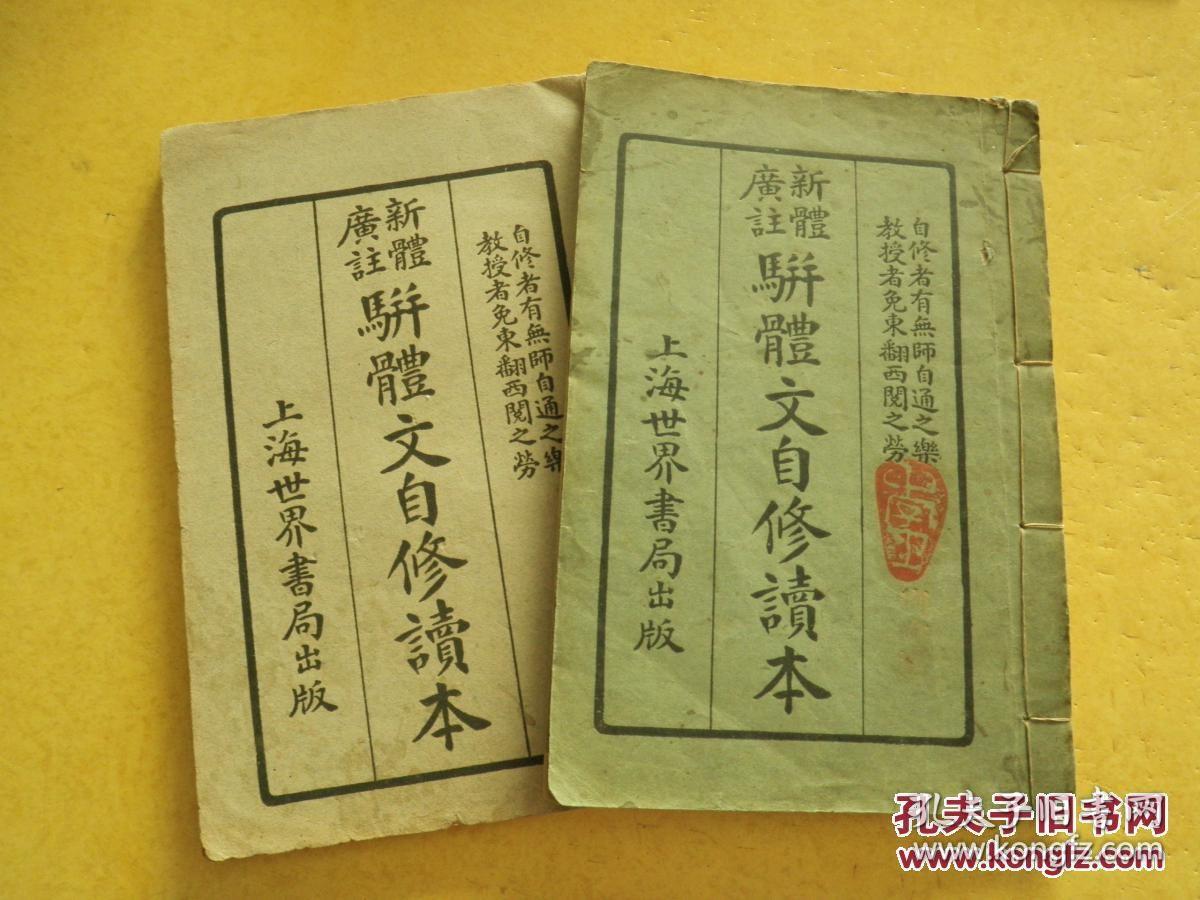 自修者有無師自通之樂
教授者免東翻西閱之勞
新體
廣註
駢體文自修讀本
上海世界書局出版
自修者有無師自通之樂
教授者免東翻西閱之勞
新體
廣註
駢體文自修讀本
上海世界書局出版
孔夫子旧书网
www.kongfz.com